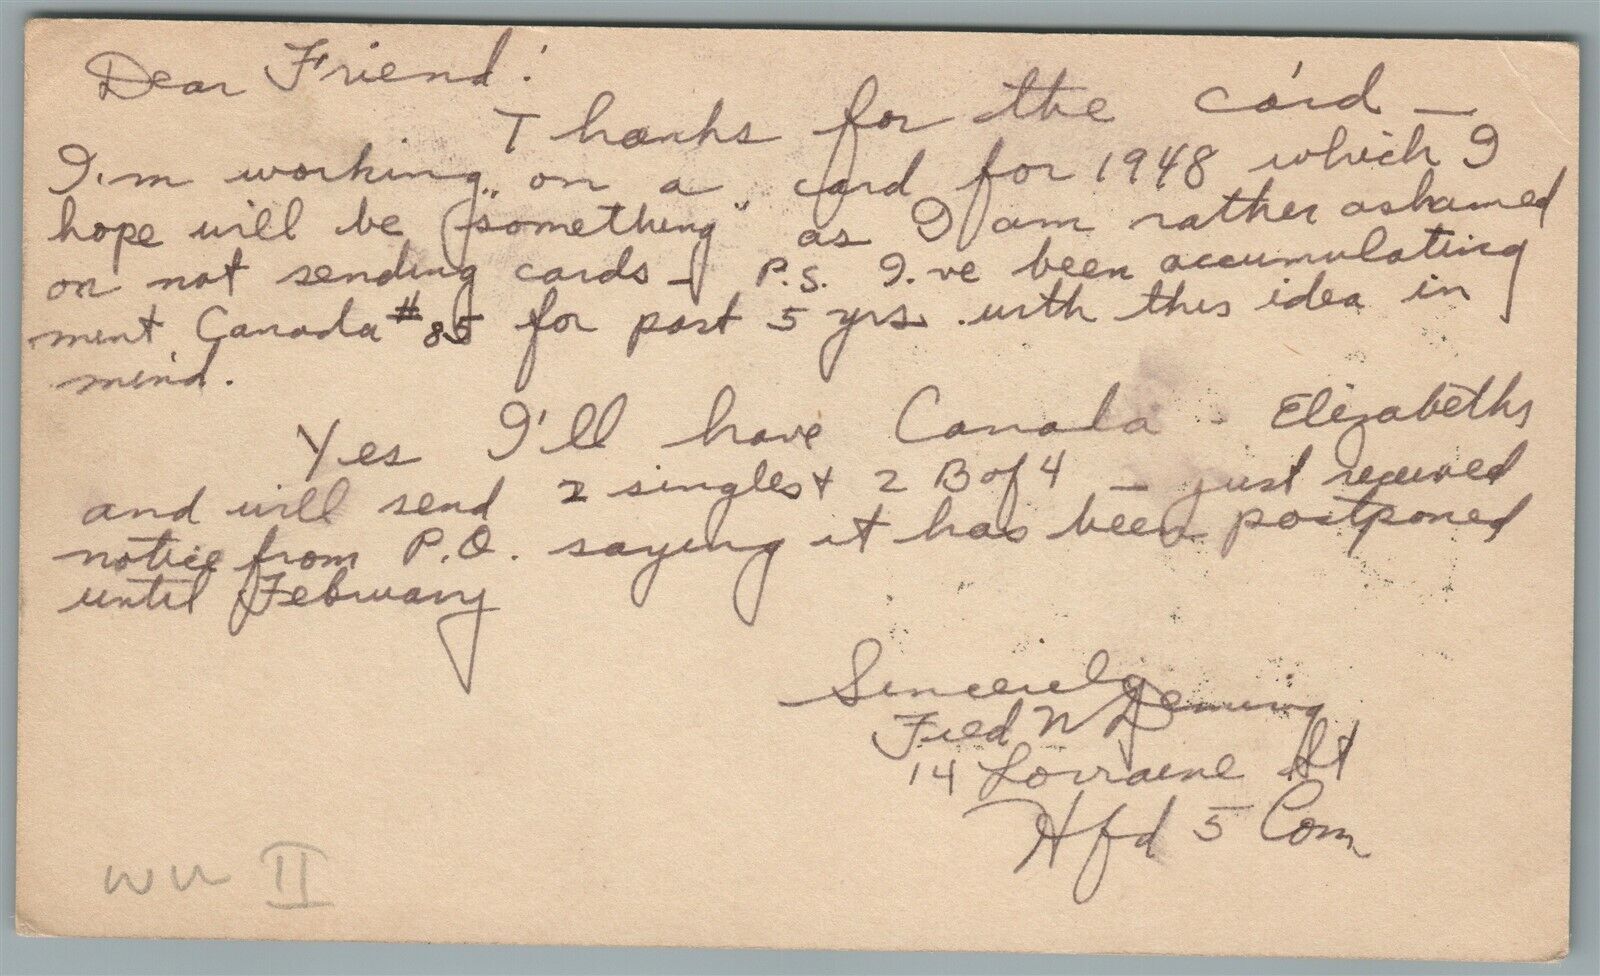 Dear Friend!
Thanks for the card –
I'm working on a card for 1948 which I
hope will be "something" as I am rather ashamed
on not sending cards – P.S. I've been accumulating
mint Canada #85 for past 5 yrs. with this idea in
mind.
Yes I'll have Canada - Elizabeths
and will send 2 singles + 2 B of 4 – just received
notice from P.O. saying it has been postponed
until February
Sincerely
Fred N Deming
14 Lorraine St
Htfd 5 Conn
WW II